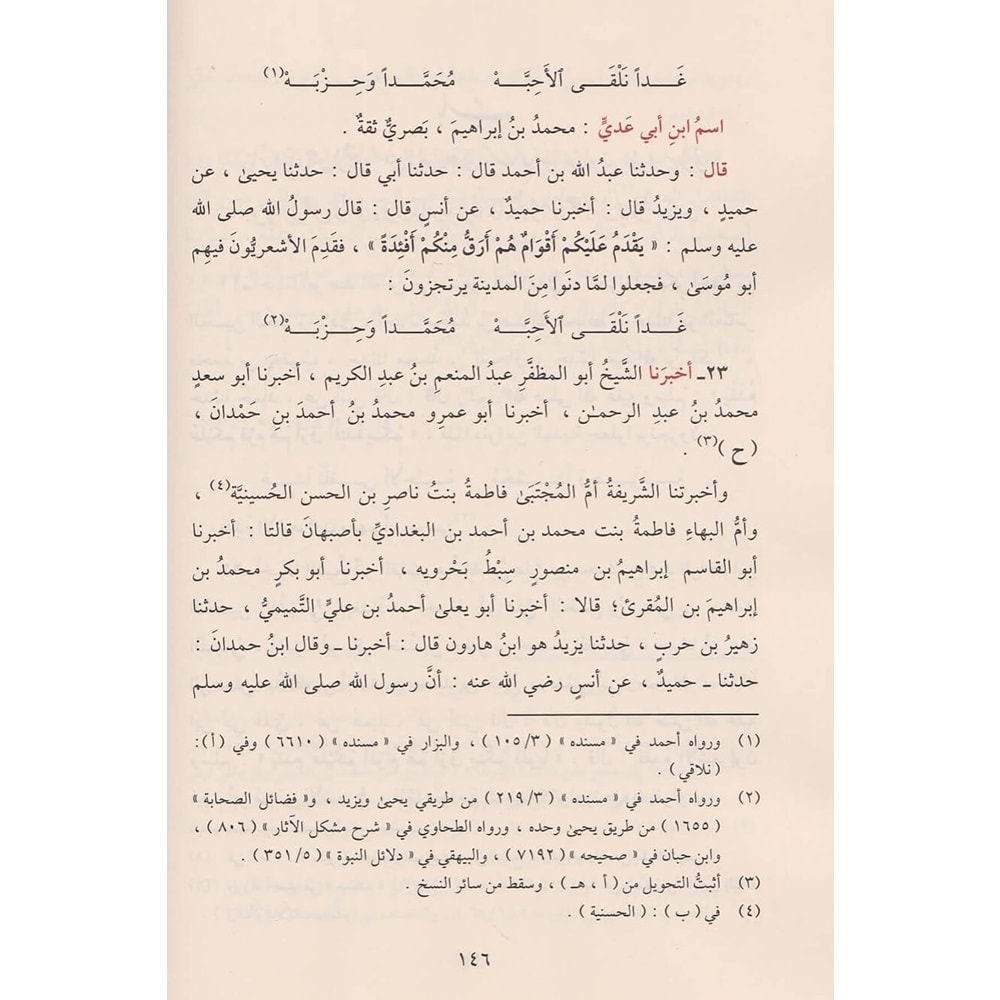 غَـــداً نَلْقَـــى ٱلأَحِبَّـــهْ مُحَمَّـــداً وَحِـــزْبَـــهْ(١)
اسمُ ابنِ أبي عَديٍّ : محمدُ بنُ إبراهيمَ ، بَصريٌّ ثقةٌ .
قال : وحدثنا عبدُ الله بن أحمد قال : حدثنا أبي قال : حدثنا يحيىٰ ، عن
حميدٍ ، ويزيدُ قال : أخبرنا حميدٌ ، عن أنسٍ قال : قال رسولُ الله صلى الله
عليه وسلم : « يَقْدَمُ عَلَيْكُمْ أَقْوَامٌ هُمْ أَرَقُّ مِنْكُمْ أَفْئِدَةً » ، فقَدِمَ الأشعريُّونَ فيهِم
أبو مُوسَىٰ ، فجعلوا لمَّا دنَوا مِنَ المدينة يرتجزونَ :
غَـــداً نَلْقَـــى ٱلأَحِبَّـــهْ مُحَمَّـــداً وَحِـــزْبَـــهْ(٢)
٢٣ـ أخبرَنا الشَّيخُ أبو المظفَّر عبدُ المنعمِ بنُ عبدِ الكريم ، أخبرنا أبو سعدٍ
محمدُ بنُ عبد الرحمـٰن ، أخبرنا أبو عمرٍو محمدُ بنُ أحمدَ بنِ حَمْدانَ ،
( ح )(٣) .
وأخبرتنا الشَّريفةُ أمُّ المُجْتَبَىٰ فاطمةُ بنتُ ناصرِ بن الحسن الحُسينيَّة(٤) ،
وأمُّ البهاءِ فاطمةُ بنت محمد بن أحمد بن البغداديِّ بأصبهانَ قالتا : أخبرنا
أبو القاسم إبراهيمُ بن منصورٍ سِبْطُ بَحْرويه ، أخبرنا أبو بكرٍ محمدُ بن
إبراهيمَ بن المُقرئ؛ قالا : أخبرنا أبو يعلىٰ أحمدُ بن عليٍّ التَّميميُّ ، حدثنا
زهيرُ بن حربٍ ، حدثنا يزيدُ هو ابنُ هارون قال : أخبرنا ـ وقال ابنُ حمدانَ :
حدثنا ـ حميدٌ ، عن أنسٍ رضي الله عنه : أنَّ رسول الله صلى الله عليه وسلم
(١) ورواه أحمد في « مسنده » ( ١٠٥/٣ ) ، والبزار في « مسنده » ( ٦٦١٠ ) وفي (أ):
( نلاقي ) .
(٢) ورواه أحمد في « مسنده » ( ٢١٩/٣ ) من طريقي يحيىٰ ويزيد ، و« فضائل الصحابة »
( ١٦٥٥ ) من طريق يحيىٰ وحده ، ورواه الطحاوي في « شرح مشكل الآثار » ( ٨٠٦ ) ،
وابن حبان في « صحيحه » ( ٧١٩٢ ) ، والبيهقي في « دلائل النبوة » ( ٣٥١/٥ ) .
(٣) أثبتُّ التحويل من ( أ ، هـ ) ، وسقط من سائر النسخ .
(٤) في ( ب ) : ( الحسنية ) .
١٤٦